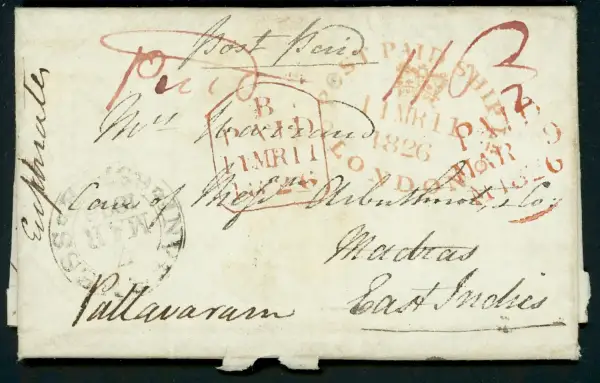 Post Paid
Paid
11/3
2
POST PAID SHIP
11 MR 11
1826
LONDON
B
PAID
11 MR 11
1826
PAID
MAR
1826
Mrs
Care of Messrs Arbuthnot & Co
Madras
East Indies
Pallavaram
Euphrates
MAR